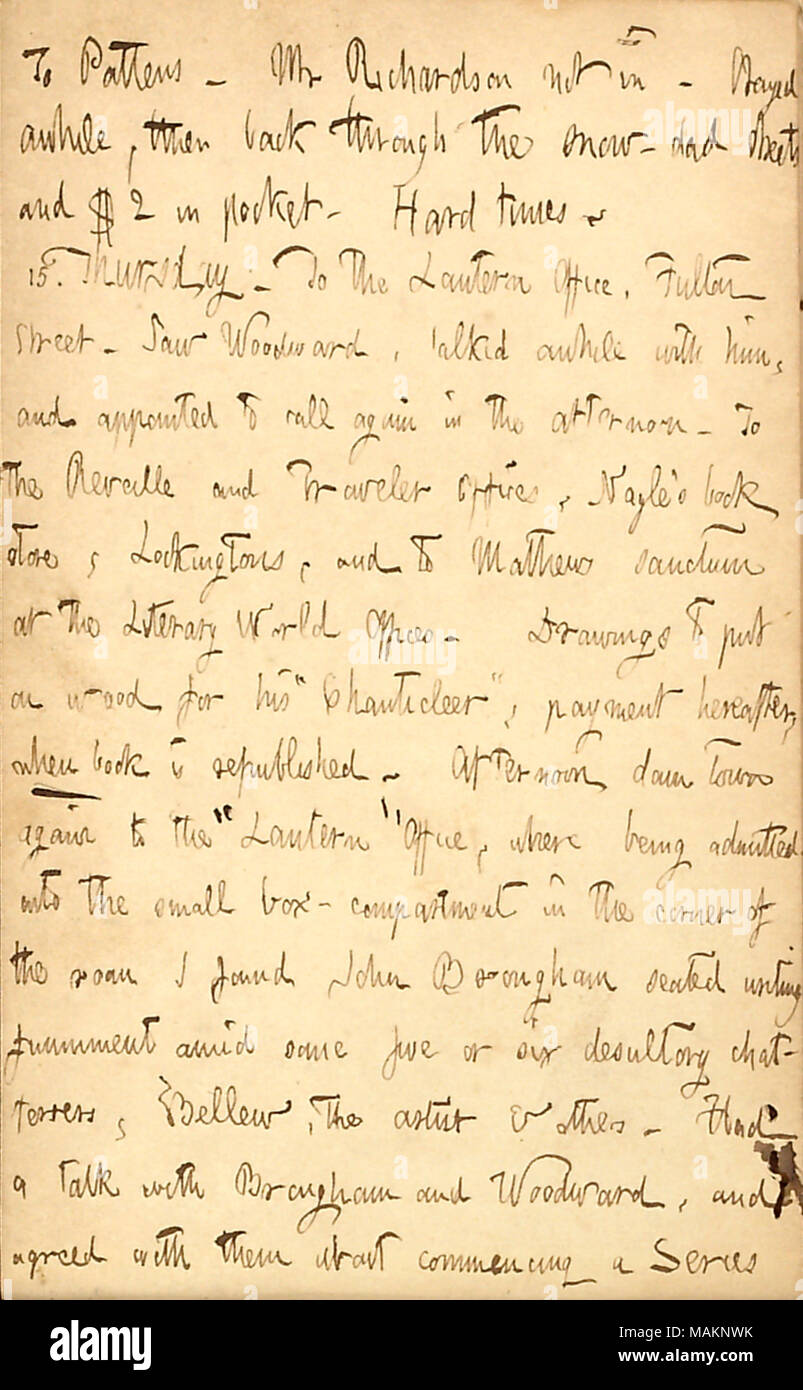 To Pattens - Mr Richardson not in - Stayed
awhile, then back through the snow-clad streets
and $2 in pocket - Hard times -
15. Thursday - To the Lantern Office, Fulton
Street - Saw Woodward, talked awhile with him,
and appointed to call again in the afternoon - To
the Reveille and Traveler offices, Nagle's book
store, Lockingtons, and to Mathews sanctum
at the Literary World Office - Drawings to put
on wood for his "Chanticleer", payment hereafter,
when book is republished - Afternoon down town
again to the "Lantern" Office, where being admitted
into the small box-compartment in the corner of
the room I found John Brougham seated writing
funniment amid some five or six desultory chat-
terrers, Bellew, the artist & others - Had
a talk with Brougham and Woodward, and
agreed with them about commencing a Series
alamy
Image ID: MAKNWK
www.alamy.com